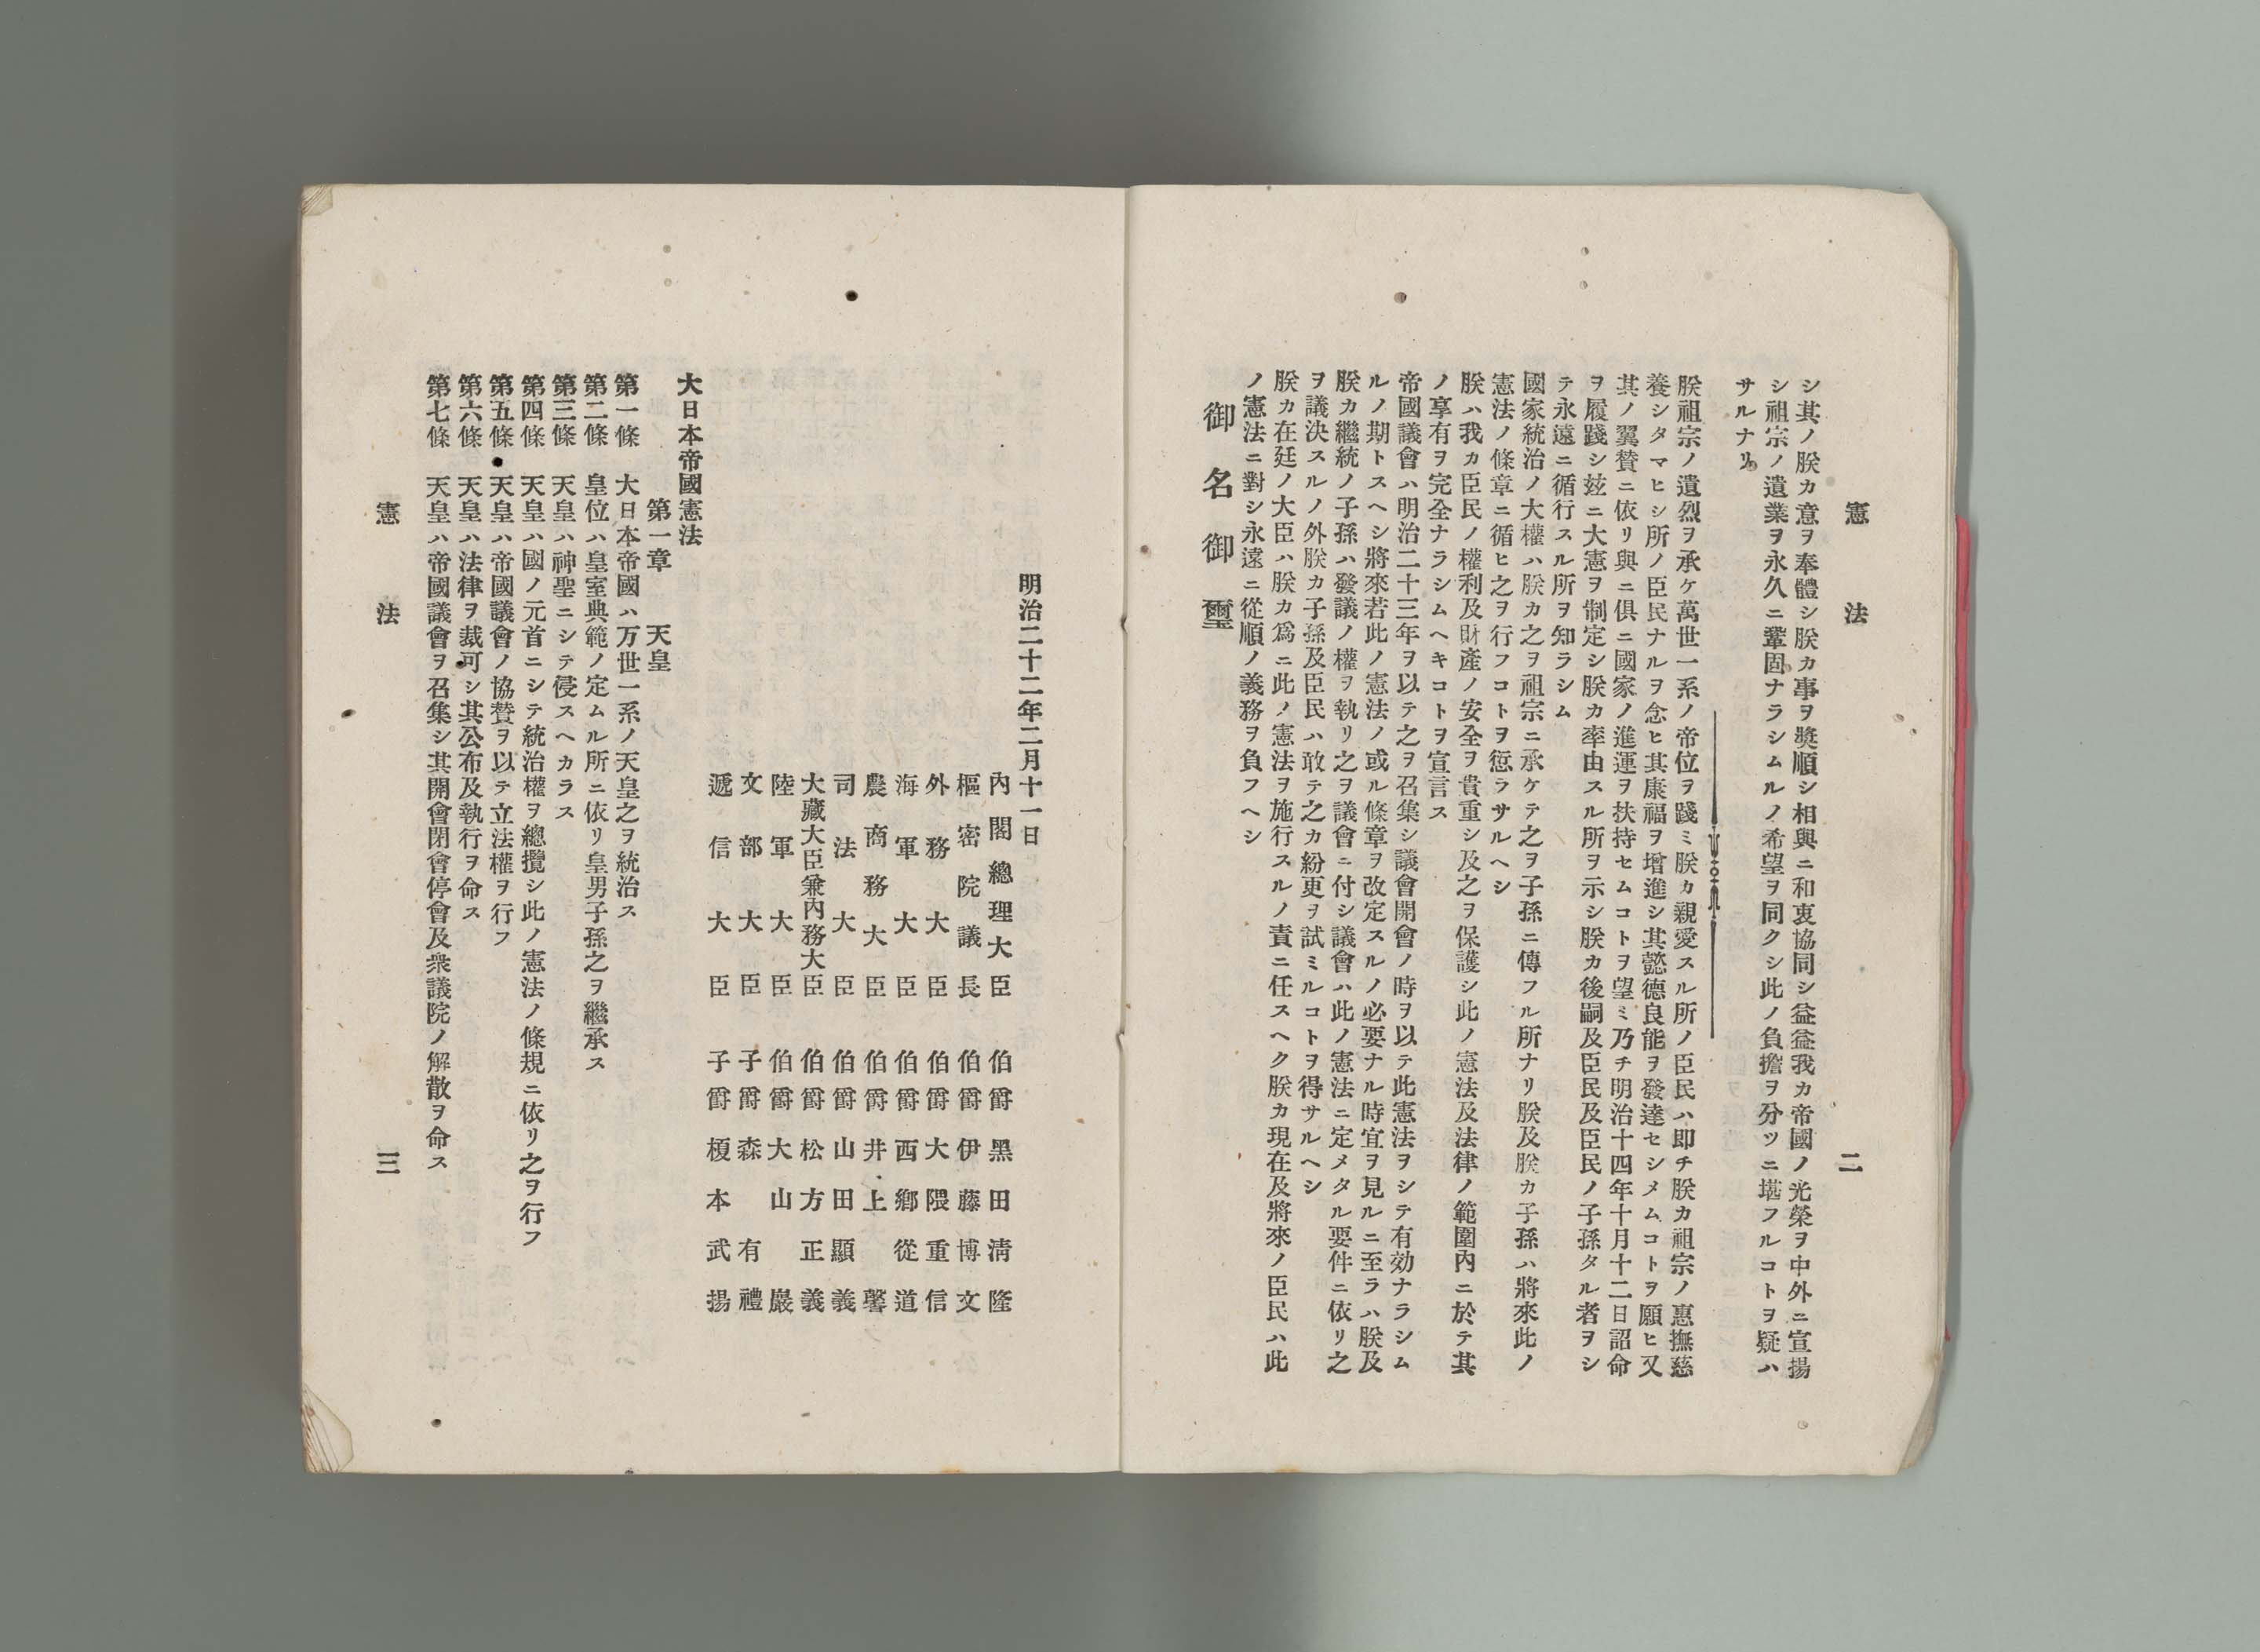 憲法
二
シ其ノ朕カ意ヲ奉體シ朕カ事ヲ奬順シ相與ニ和衷協同シ益益我カ帝國ノ光榮ヲ中外ニ宣揚
シ祖宗ノ遺業ヲ永久ニ鞏固ナラシムルノ希望ヲ同クシ此ノ負擔ヲ分ツニ堪フルコトヲ疑ハ
サルナリ
朕祖宗ノ遺烈ヲ承ケ萬世一系ノ帝位ヲ踐ミ朕カ親愛スル所ノ臣民ハ即チ朕カ祖宗ノ惠撫慈
養シタマヒシ所ノ臣民ナルヲ念ヒ其康福ヲ增進シ其懿德良能ヲ發達セシメムコトヲ願ヒ又
其ノ翼賛ニ依リ與ニ俱ニ國家ノ進運ヲ扶持セムコトヲ望ミ乃チ明治十四年十月十二日詔命
ヲ履踐シ玆ニ大憲ヲ制定シ朕カ率由スル所ヲ示シ朕カ後嗣及臣民及臣民ノ子孫タル者ヲシ
テ永遠ニ循行スル所ヲ知ラシム
國家統治ノ大權ハ朕カ之ヲ祖宗ニ承ケテ之ヲ子孫ニ傳フル所ナリ朕及朕カ子孫ハ將來此ノ
憲法ノ條章ニ循ヒ之ヲ行フコトヲ愆ラサルヘシ
朕ハ我カ臣民ノ權利及財產ノ安全ヲ貴重シ及之ヲ保護シ此ノ憲法及法律ノ範圍內ニ於テ其
ノ享有ヲ完全ナラシムヘキコトヲ宣言ス
帝國議會ハ明治二十三年ヲ以テ之ヲ召集シ議會開會ノ時ヲ以テ此憲法ヲシテ有効ナラシム
ルノ期トスヘシ將來若此ノ憲法ノ或ル條章ヲ改定スルノ必要ナル時宜ヲ見ルニ至ラハ朕及
朕カ繼統ノ子孫ハ發議ノ權ヲ執リ之ヲ議會ニ付シ議會ハ此ノ憲法ニ定メタル要件ニ依リ之
ヲ議決スルノ外朕カ子孫及臣民ハ敢テ之カ紛更ヲ試ミルコトヲ得サルヘシ
朕カ在廷ノ大臣ハ朕カ爲ニ此ノ憲法ヲ施行スルノ責ニ任スヘク朕カ現在及將來ノ臣民ハ此
ノ憲法ニ對シ永遠ニ從順ノ義務ヲ負フヘシ
御名御璽
明治二十二年二月十一日
內閣總理大臣 伯爵 黑田清隆
樞密院議長 伯爵 伊藤博文
外務大臣 伯爵 大隈重信
海軍大臣 伯爵 西鄕從道
農商務大臣 伯爵 井上馨
司法大臣 伯爵 山田顯義
大藏大臣兼內務大臣 伯爵 松方正義
陸軍大臣 伯爵 大山巖
文部大臣 子爵 森有禮
遞信大臣 子爵 榎本武揚
大日本帝國憲法
第一章 天皇
第一條 大日本帝國ハ万世一系ノ天皇之ヲ統治ス
第二條 皇位ハ皇室典範ノ定ムル所ニ依リ皇男子孫之ヲ繼承ス
第三條 天皇ハ神聖ニシテ侵スヘカラス
第四條 天皇ハ國ノ元首ニシテ統治權ヲ總攬シ此ノ憲法ノ條規ニ依リ之ヲ行フ
第五條 天皇ハ帝國議會ノ協賛ヲ以テ立法權ヲ行フ
第六條 天皇ハ法律ヲ裁可シ其公布及執行ヲ命ス
第七條 天皇ハ帝國議會ヲ召集シ其開會閉會停會及衆議院ノ解散ヲ命ス
憲法
三